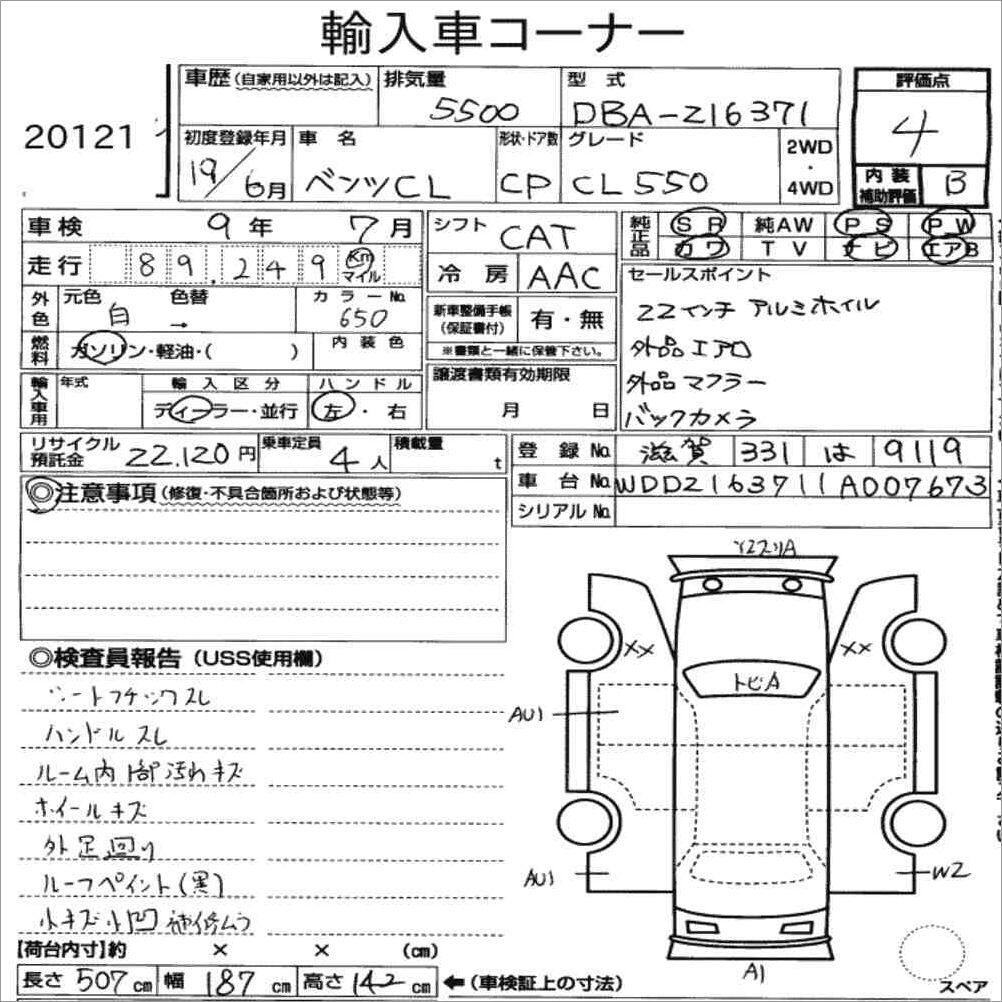 輸入車コーナー
20121
車歴(自家用以外は記入) 排気量 5500 型式 DBA-216371 評価点 4
初度登録年月 19/6月 車名 ベンツCL 形状・ドア数 CP グレード CL550 2WD・4WD 内装補助評価 B
車検 9年 7月 シフト CAT 純正品 SR 純AW PS PW
走行 89,249 Km マイル 冷房 AAC カワ TV ナビ エアB
外色 元色 白 色替 → カラーNo. 650 新車整備手帳(保証書付) 有・無
※書類と一緒に保管下さい。
燃料 ガソリン・軽油・( ) 内装色
セールスポイント
22インチ アルミホイル
外品エアロ
外品マフラー
バックカメラ
輸入車用 年式 輸入区分 ディーラー・並行 ハンドル 左・右 譲渡書類有効期限 月 日
リサイクル預託金 22,120円 乗車定員 4人 積載量 t
登録No. 滋賀 331 は 9119
車台No. WDD2163711A007673
シリアルNo.
◎注意事項(修復・不具合箇所および状態等)
◎検査員報告(USS使用欄)
シートフチックスレ
ハンドルスレ
ルーム内1部汚れキズ
ホイールキズ
外足回り
ルーフペイント(黒)
小キズ小凹補修ムラ
XX XX
トビA
AU1
AU1 W2
A1
スペア
【荷台内寸】約 × × (cm)
長さ 507cm 幅 187cm 高さ 142cm ←(車検証上の寸法)